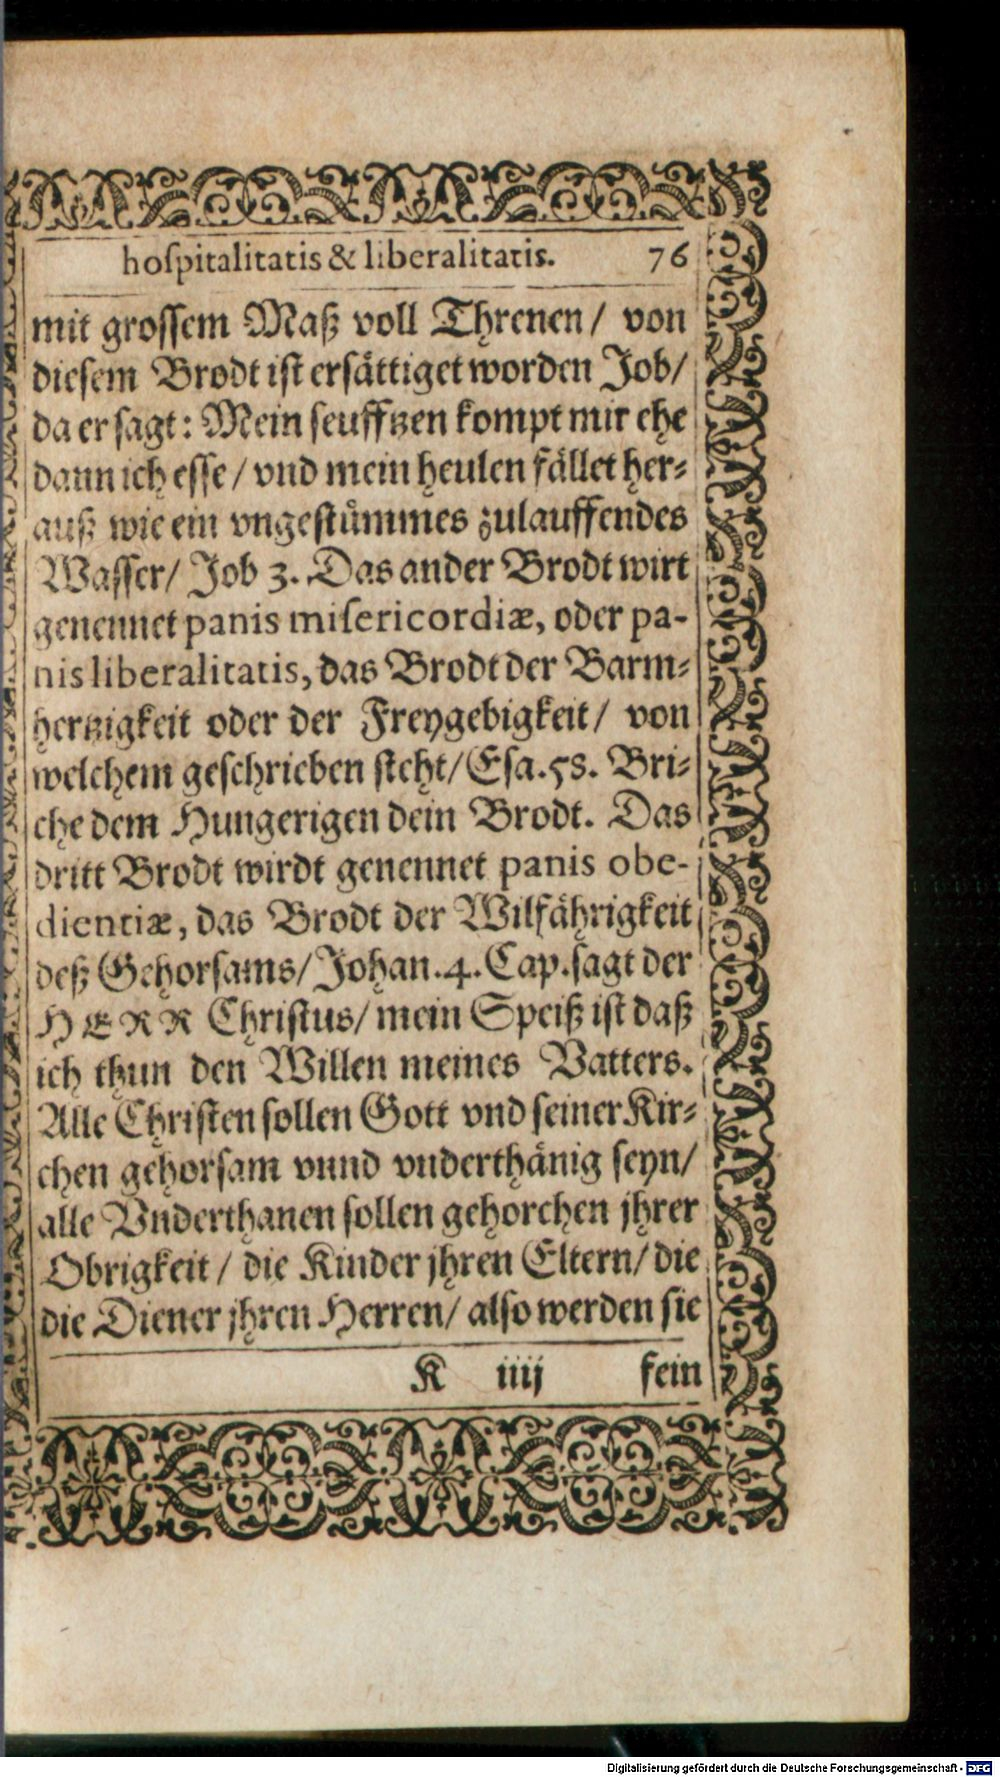 hoſpitalitatis & liberalitatis. 76
mit groſſem Maß voll Threnen / von
dieſem Brodt iſt erſättiget worden Job /
da er ſagt : Mein ſeufftzen kompt mir ehe
dann ich eſſe / vnd mein heulen fället her-
auß wie ein vngeſtuͤmmes zulauffendes
Waſſer / Job 3. Das ander Brodt wirt
genennet panis miſericordiæ, oder pa-
nis liberalitatis, das Brodt der Barm-
hertzigkeit oder der Freygebigkeit / von
welchem geſchrieben ſteht / Eſa. 58. Bri-
che dem Hungerigen dein Brodt. Das
dritt Brodt wirdt genennet panis obe-
dientiæ, das Brodt der Wilfährigkeit
deß Gehorſams / Johan. 4. Cap. ſagt der
HERR Chriſtus / mein Speiß iſt daß
ich thun den Willen meines Vatters.
Alle Chriſten ſollen Gott vnd ſeiner Kir-
chen gehorſam vnnd vnderthänig ſeyn /
alle Vnderthanen ſollen gehorchen jhrer
Obrigkeit / die Kinder jhren Eltern / die
die Diener jhren Herren / alſo werden ſie
K iiij fein
Digitalisierung gefördert durch die Deutsche Forschungsgemeinschaft - DFG